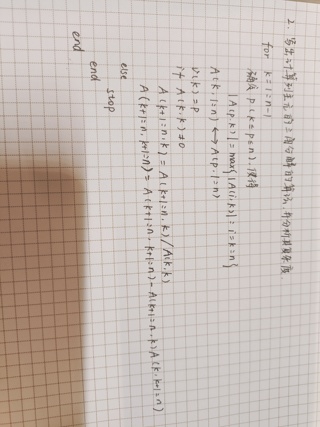 2. 写出计算列主元的三角分解的算法,并分析其复杂度.
for k=1:n-1
确定 p(k≤p≤n),使得
|A(p,k)|=max{|A(i,k)|:i=k:n}
A(k,1:n)↔A(p,1:n)
u(k)=p
if A(k,k)≠0
A(k+1:n,k)=A(k+1:n,k)/A(k,k)
A(k+1:n,k+1:n)=A(k+1:n,k+1:n)-A(k+1:n,k)A(k,k+1:n)
else
stop
end
end